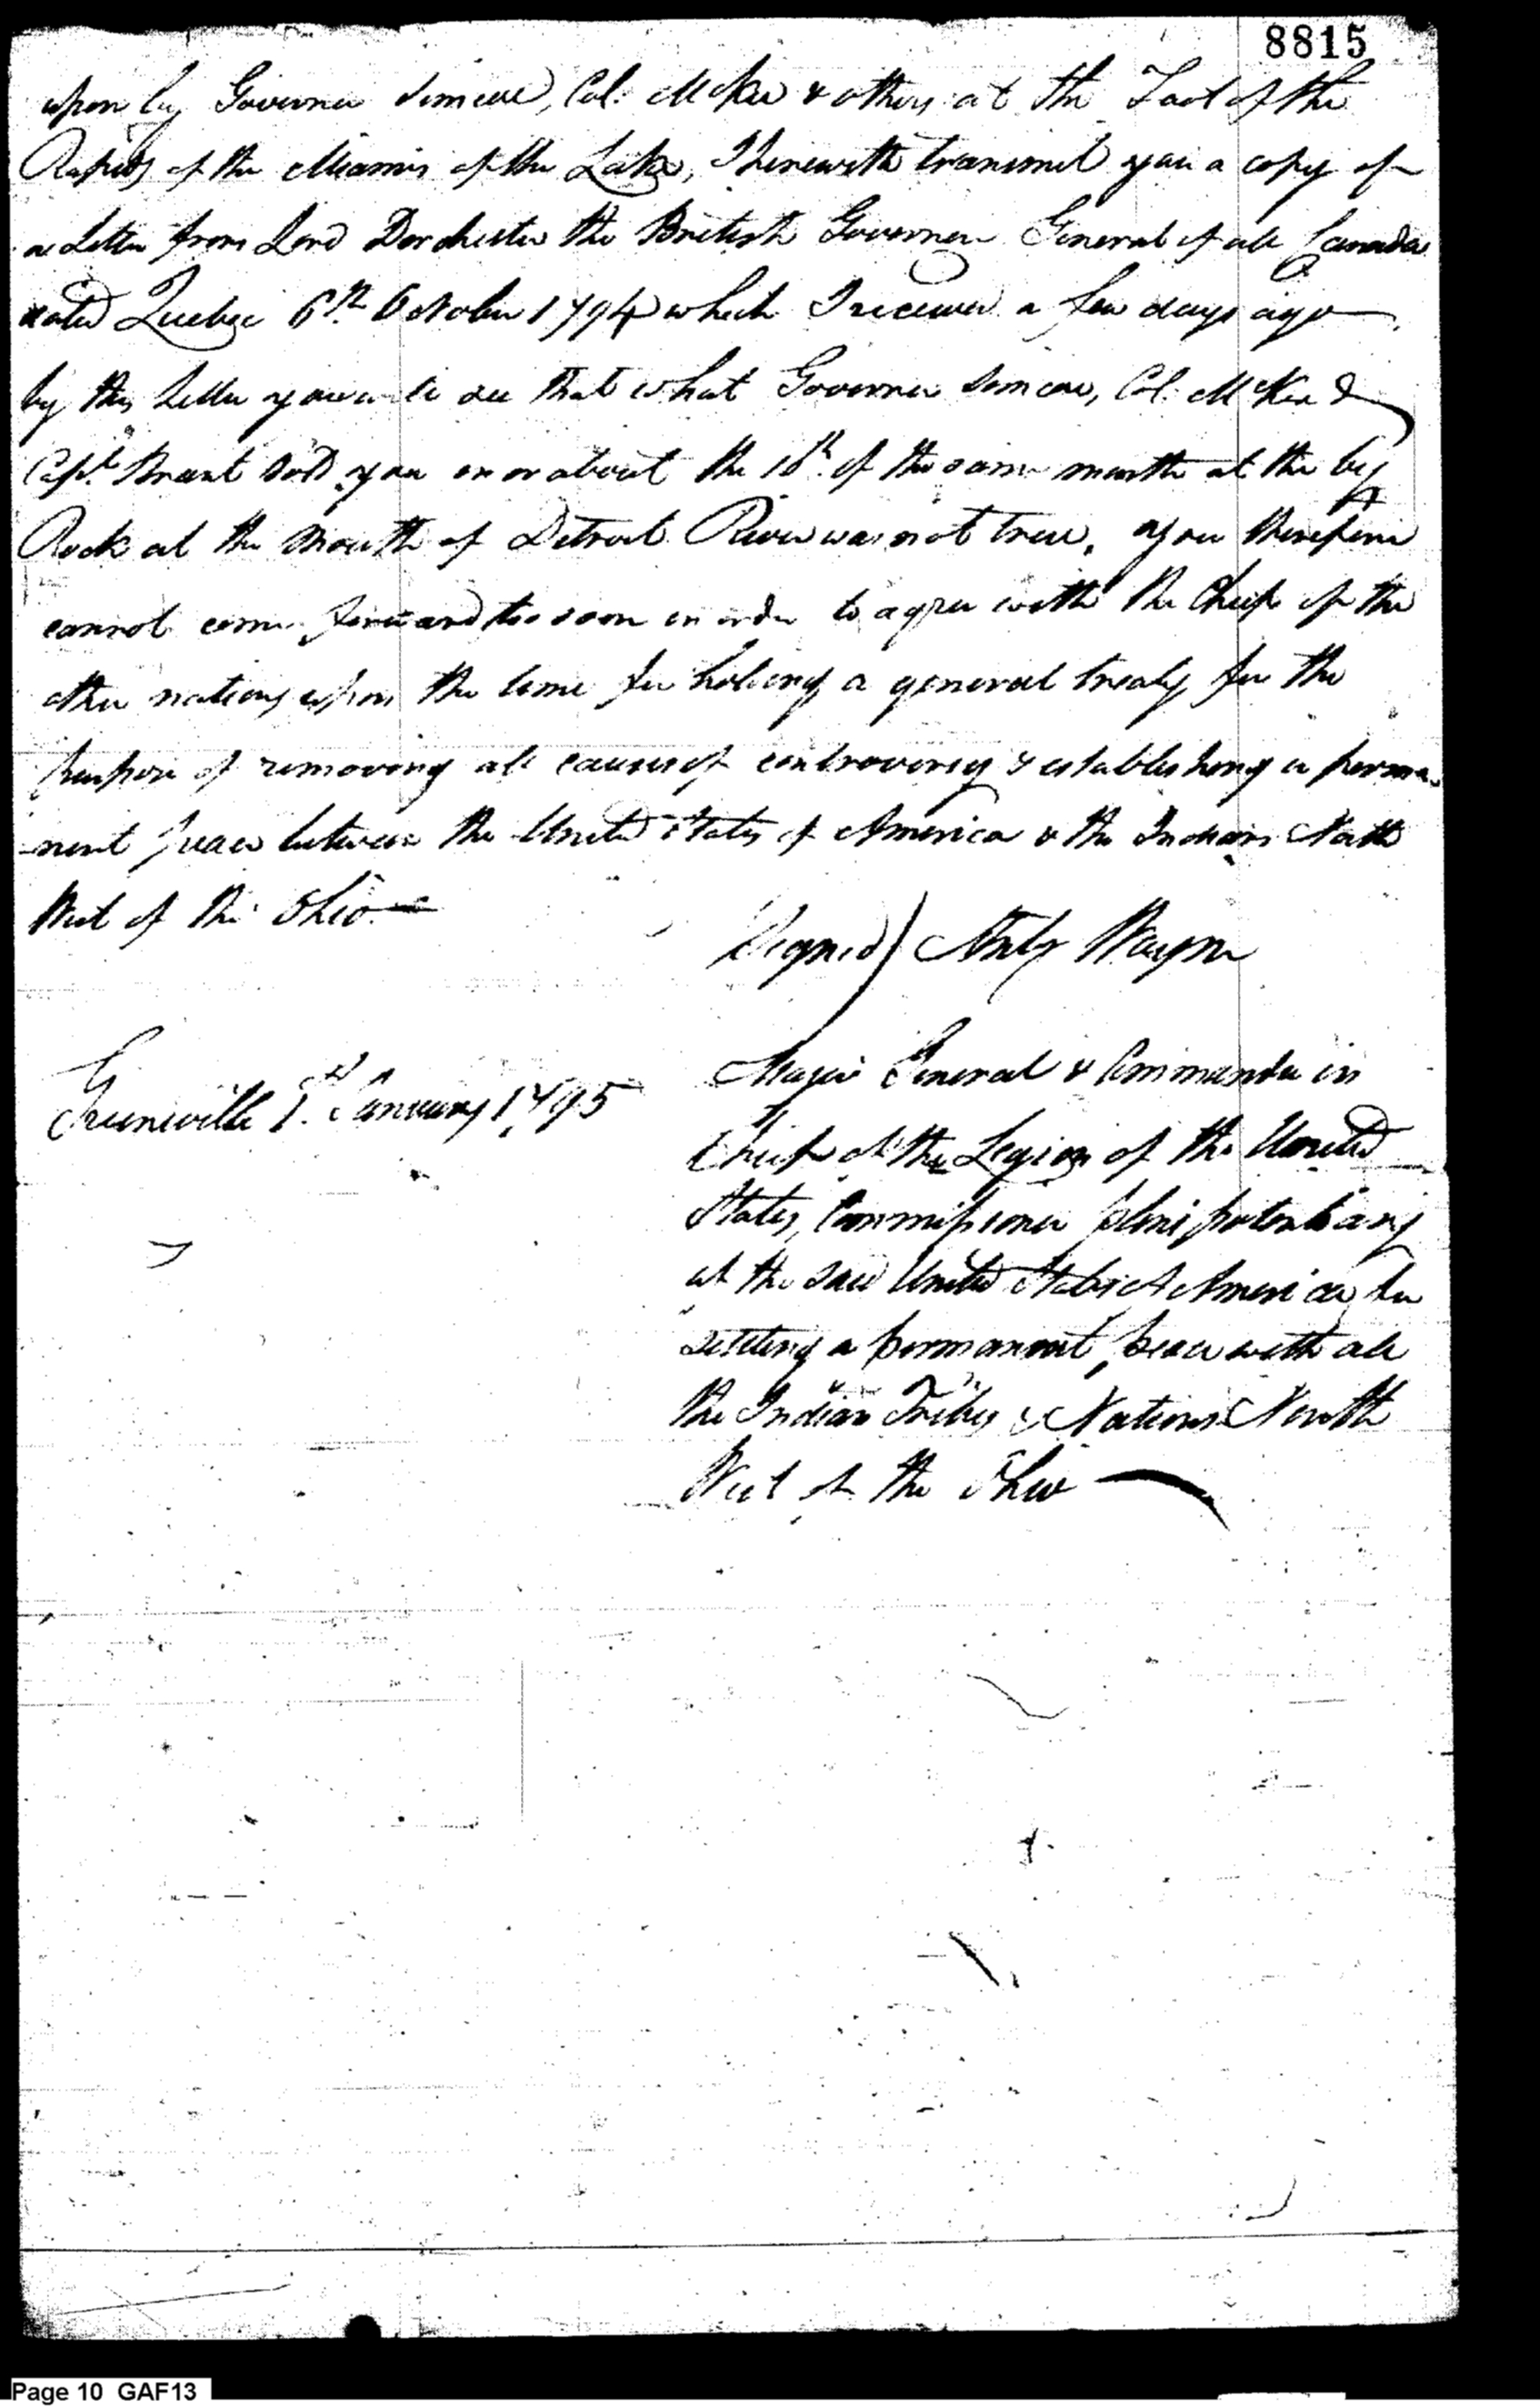 8815
upon by Governor Simcoe, Col: McKee & others at the Foot of the
Rapids of the Miamis of the Lake, I herewith transmit you a copy of
a Letter from Lord Dorchester the British Governor General of all Canada
dated Quebec 6th October 1794 which I received a few days ago
by this Letter you will see that what Governor Simcoe, Col. McKee &
Capt. Brant told you on or about the 10th of the same month at the big
Rock at the Mouth of Detroit River was not true, you therefore
cannot come forward too soon in order to agree with the Chiefs of the
other nations upon the time for holding a general treaty for the
purpose of removing all causes of controversy & establishing a perma-
nent peace between the United States of America & the Indians North
West of the Ohio.
Signed) Anty Wayne
Major General & Commander in
Greeneville 1st January 1795
Chief of the Legion of the United
States, Commissioner plenipotentiary
of the said United States of America for
settling a permanent peace with all
the Indian Tribes & Nations North
West of the Ohio
Page 10 GAF13